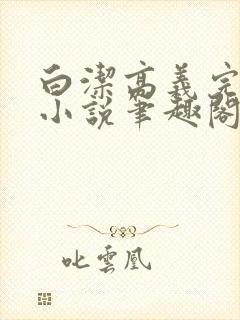 白潔高義完
小説筆趣閣
叱雲凰